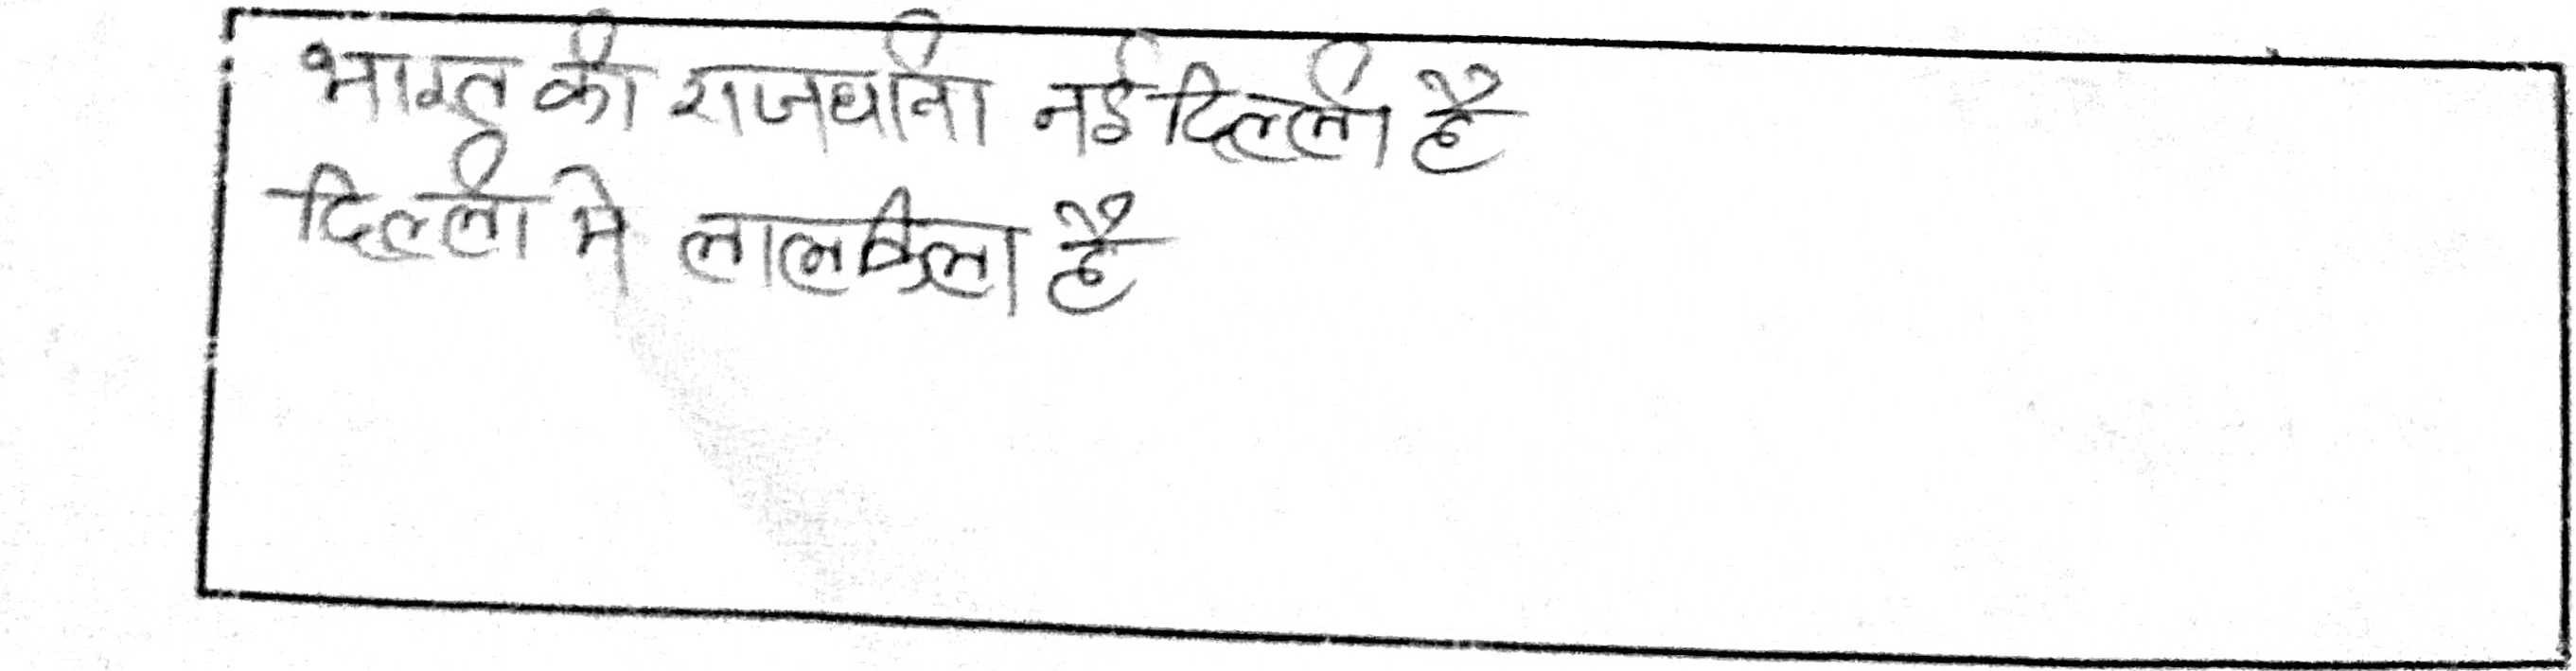 भारत की राजधानी नई दिल्ली है
दिल्ली मे लालकिला है